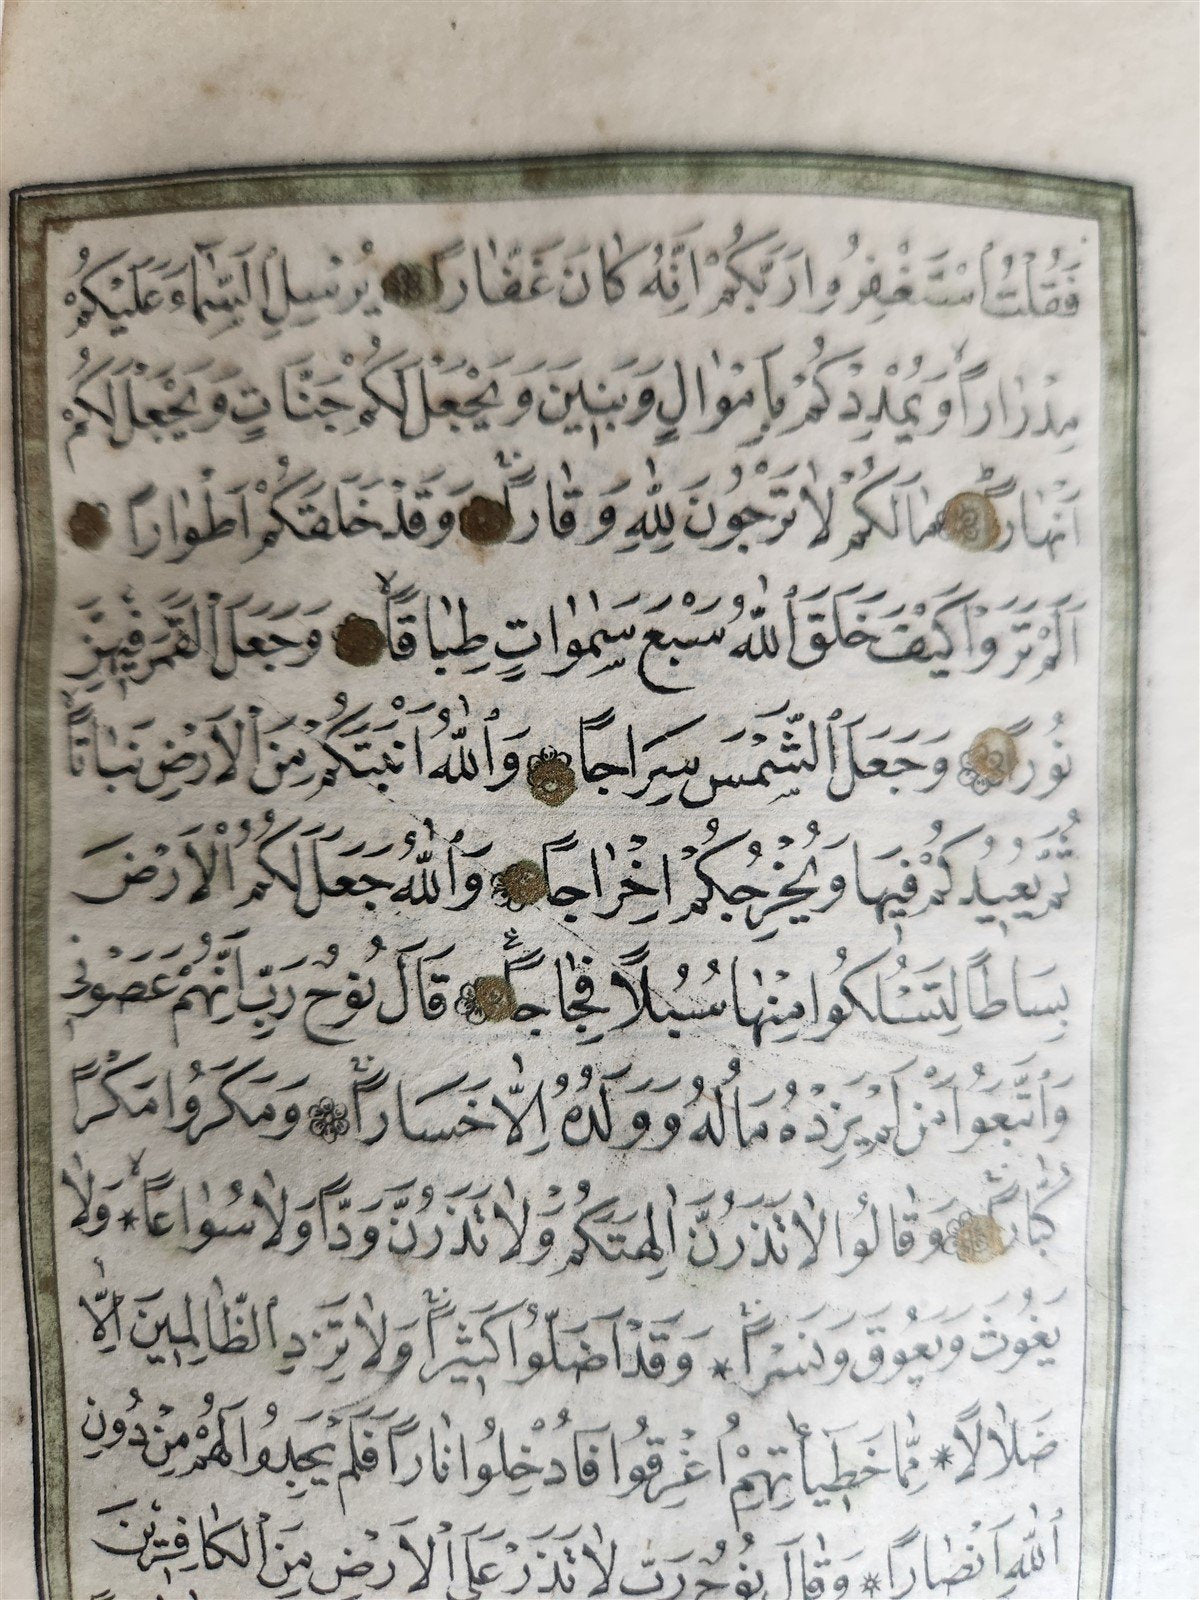 فَقُلْتُ ٱسْتَغْفِرُوا رَبَّكُمْ اِنَّهُ كَانَ غَفَّارًا يُرْسِلِ ٱلسَّمَاءَ عَلَيْكُمْ
مِدْرَارًا وَيُمْدِدْكُمْ بِاَمْوَالٍ وَبَنِينَ وَيَجْعَلْ لَكُمْ جَنَّاتٍ وَيَجْعَلْ لَكُمْ
اَنْهَارًا مَالَكُمْ لَا تَرْجُونَ لِلّٰهِ وَقَارًا وَقَدْ خَلَقَكُمْ اَطْوَارًا
اَلَمْ تَرَوْا كَيْفَ خَلَقَ ٱللّٰهُ سَبْعَ سَمٰوَاتٍ طِبَاقًا وَجَعَلَ ٱلْقَمَرَ فِيهِنَّ
نُورًا وَجَعَلَ ٱلشَّمْسَ سِرَاجًا وَٱللّٰهُ اَنْبَتَكُمْ مِنَ ٱلْاَرْضِ نَبَاتًا
ثُمَّ يُعِيدُكُمْ فِيهَا وَيُخْرِجُكُمْ اِخْرَاجًا وَٱللّٰهُ جَعَلَ لَكُمُ ٱلْاَرْضَ
بِسَاطًا لِتَسْلُكُوا مِنْهَا سُبُلًا فِجَاجًا قَالَ نُوحٌ رَبِّ اِنَّهُمْ عَصَوْنِى
وَٱتَّبَعُوا مَنْ لَمْ يَزِدْهُ مَالُهُ وَوَلَدُهُ اِلَّا خَسَارًا وَمَكَرُوا مَكْرًا
كُبَّارًا وَقَالُوا لَا تَذَرُنَّ اٰلِهَتَكُمْ وَلَا تَذَرُنَّ وَدًّا وَلَا سُوَاعًا * وَلَا
يَغُوثَ وَيَعُوقَ وَنَسْرًا * وَقَدْ اَضَلُّوا كَثِيرًا وَلَا تَزِدِ ٱلظَّالِمِينَ اِلَّا
ضَلَالًا * مِمَّا خَطِيـٔاٰتِهِمْ اُغْرِقُوا فَاُدْخِلُوا نَارًا فَلَمْ يَجِدُوا لَهُمْ مِنْ دُونِ
ٱللّٰهِ اَنْصَارًا * وَقَالَ نُوحٌ رَبِّ لَا تَذَرْ عَلَى ٱلْاَرْضِ مِنَ ٱلْكَافِرِينَ